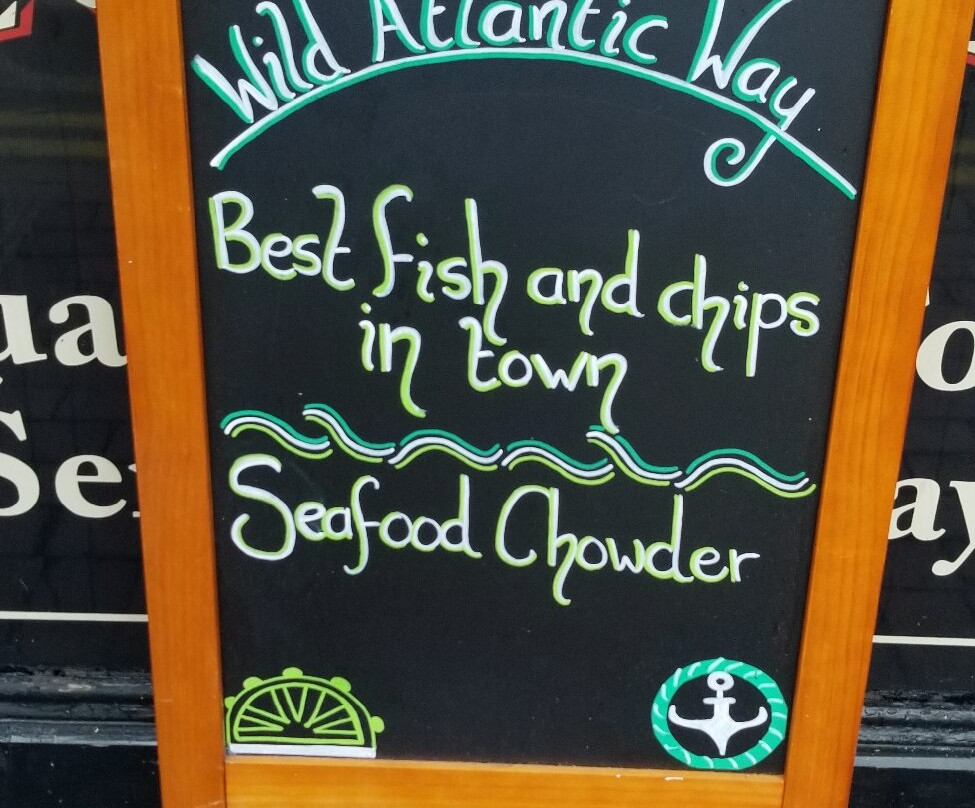 Wild Atlantic Way
Best fish and chips
in town
Seafood Chowder